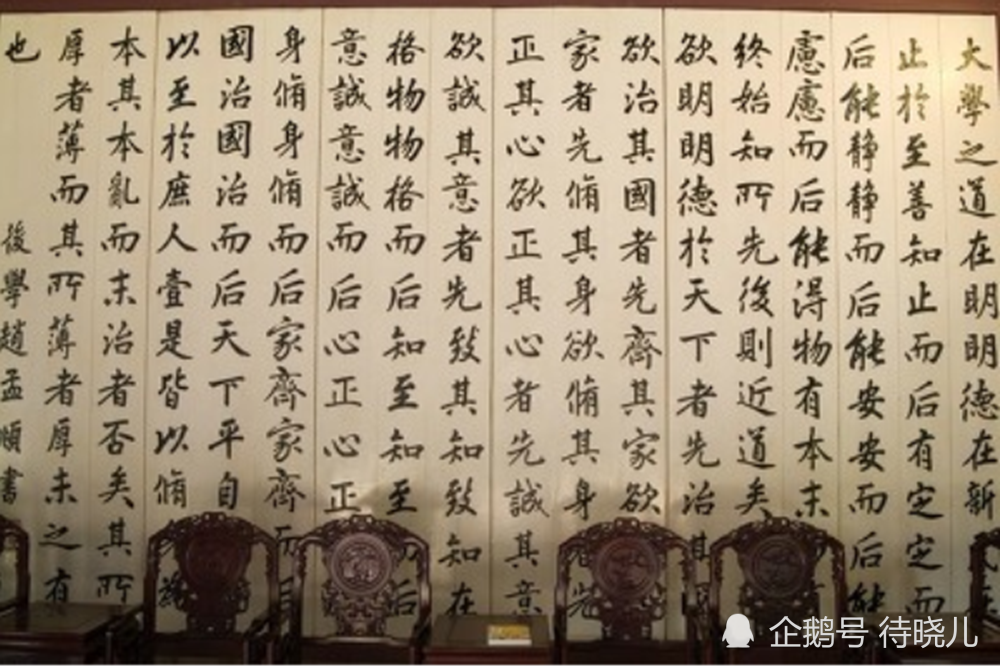 大學之道在明明德在新民在
止於至善知止而后有定定而
后能静静而后能安安而后能
慮慮而后能得物有本末
終始知所先後則近道矣
欲明明德於天下者先治其
欲治其國者先齊其家欲
家者先脩其身欲脩其身者先
正其心欲正其心者先誠其意
欲誠其意者先致其知致知在
格物物格而后知至知至而后
意誠意誠而后心正心正
身脩身脩而后家齊家齊而
國治國治而后天下平自
以至於庶人壹是皆以脩身為
本其本亂而末治者否矣其所
厚者薄而其所薄者厚未之有
也 後學趙孟順書
企鹅号 待晓儿